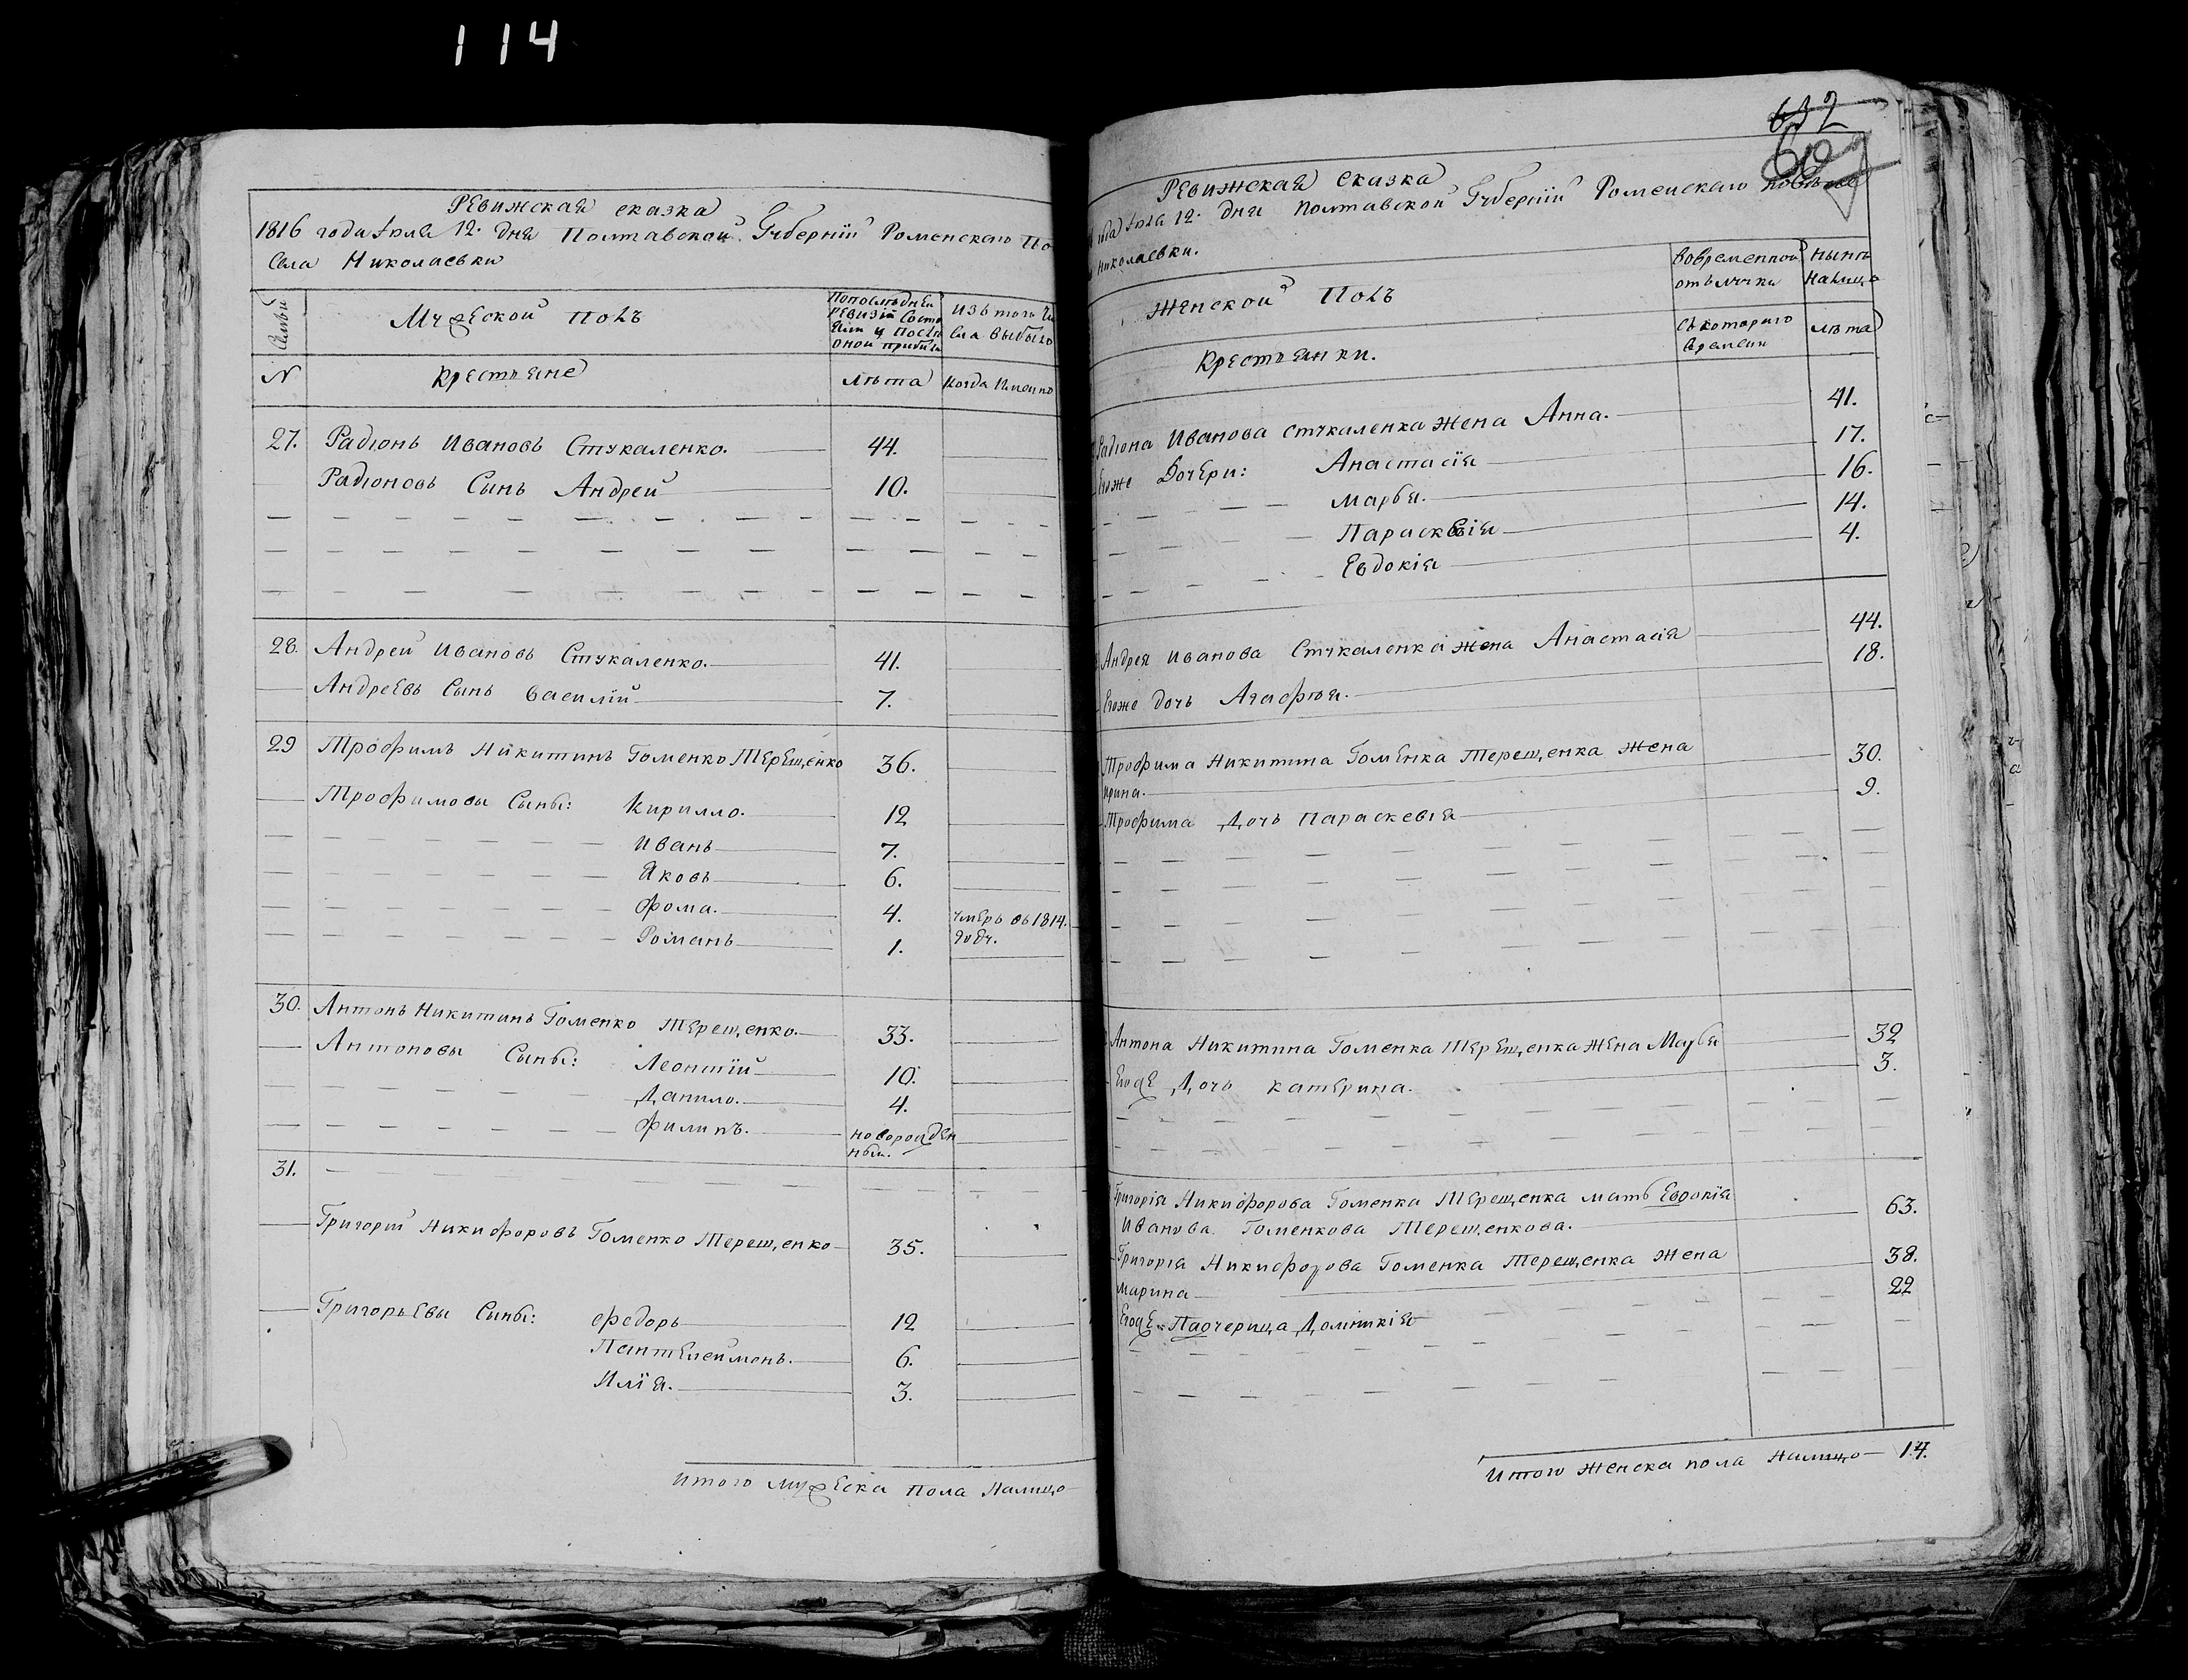 114
Ревижская сказка
1816 года Іюля 12. дня Полтавской Губерніи Роменскаго По
Села Николаевки
Семьи
Мужеской Полъ
По последней ревизіи состо яли и после оной прибыли
Изъ того чи сла выбыло
N
Крестьяне
Лѣта
Когда Именно
27. Радіонъ Ивановъ Стукаленко. 44.
Радіоновъ Сынъ Андрей 10.
28. Андрей Ивановъ Стукаленко. 41.
Андреевъ Сынъ Василій 7.
29 Трофимъ Никитинъ Гоменко Терещенко 36.
Трофимовы Сыны: Кирилло. 12
Иванъ 7.
Яковъ 6.
Фома. 4. умеръ въ 1814.
Романъ 1. году.
30. Антонъ Никитинъ Гоменко Терещенко. 33.
Антоновы Сыны: Леонтій 10.
Данило. 4.
Филипъ. новорожден
ный.
31.
Григорій Никифоровъ Гоменко Терещенко 35.
Григорьевы Сыны: Федоръ 12
Пантелеймонъ. 6.
Илія. 3.
Итого мужеска пола налицо
632
60
Ревижская сказка
года Іюля 12. дня Полтавской Губерніи Роменскаго Повѣта
Николаевки.
Женской Полъ
Во временной отълучки
Нынѣ налицо
Крестьянки.
Съ котораго времени
лѣта
Радіона Иванова Стукаленка жена Анна. 41.
Егоже Дочери: Анастасія 17.
Марья. 16.
Параскевія 14.
Евдокія 4.
Андрея Иванова Стукаленка жена Анастасія 44.
Егоже дочь Агафія. 18.
Трофима Никитина Гоменка Терещенка жена
Ирина. 30.
Трофима Дочь Параскевія 9.
Антона Никитина Гоменка Терещенка жена Марья 32
Егоже Дочь Катерина. 3.
Григорія Никифорова Гоменка Терещенка мать Евдокія
Иванова Гоменкова Терещенкова. 63.
Григорія Никифорова Гоменка Терещенка жена
Марина 38.
Егоже Падчерица Домникія 22
Итого женска пола налицо 14.